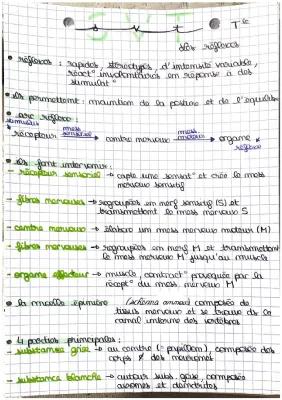 SVT
Tle
les réflexes
• réflexes : rapides, stéréotypés, d'intensité variable,
réact° involontaires en réponse à des
stimulat°
• Ils permettent : maintien de la posture et de l'équilibre
• arc réflexe :
stimulus
récepteur mess sensoriel centre nerveux mess moteur organe
réflexe
• Ils font intervenir :
- récepteur sensoriel → capte une sensat° et crée le mess
nerveux sensitif
- fibres nerveuses → regroupées en nerf sensitif (S) et
transmettent le mess nerveux S
- centre nerveux → élabore un mess nerveux moteur (M)
- fibres nerveuses → regroupées en nerf M et transmettent
le mess nerveux M jusqu'au muscle
- organe effecteur → muscle, contract° provoquée par la
récept° du mess nerveux M
• la moelle épinière (schéma annexe) composée de
tissus nerveux et se trouve ds le
canal interne des vertèbres
• 4 parties principales :
- substance grise → au centre (= papillon), composée des
corps des neurones
- substance blanche → autour subs. grise, composée
axones et dendrites